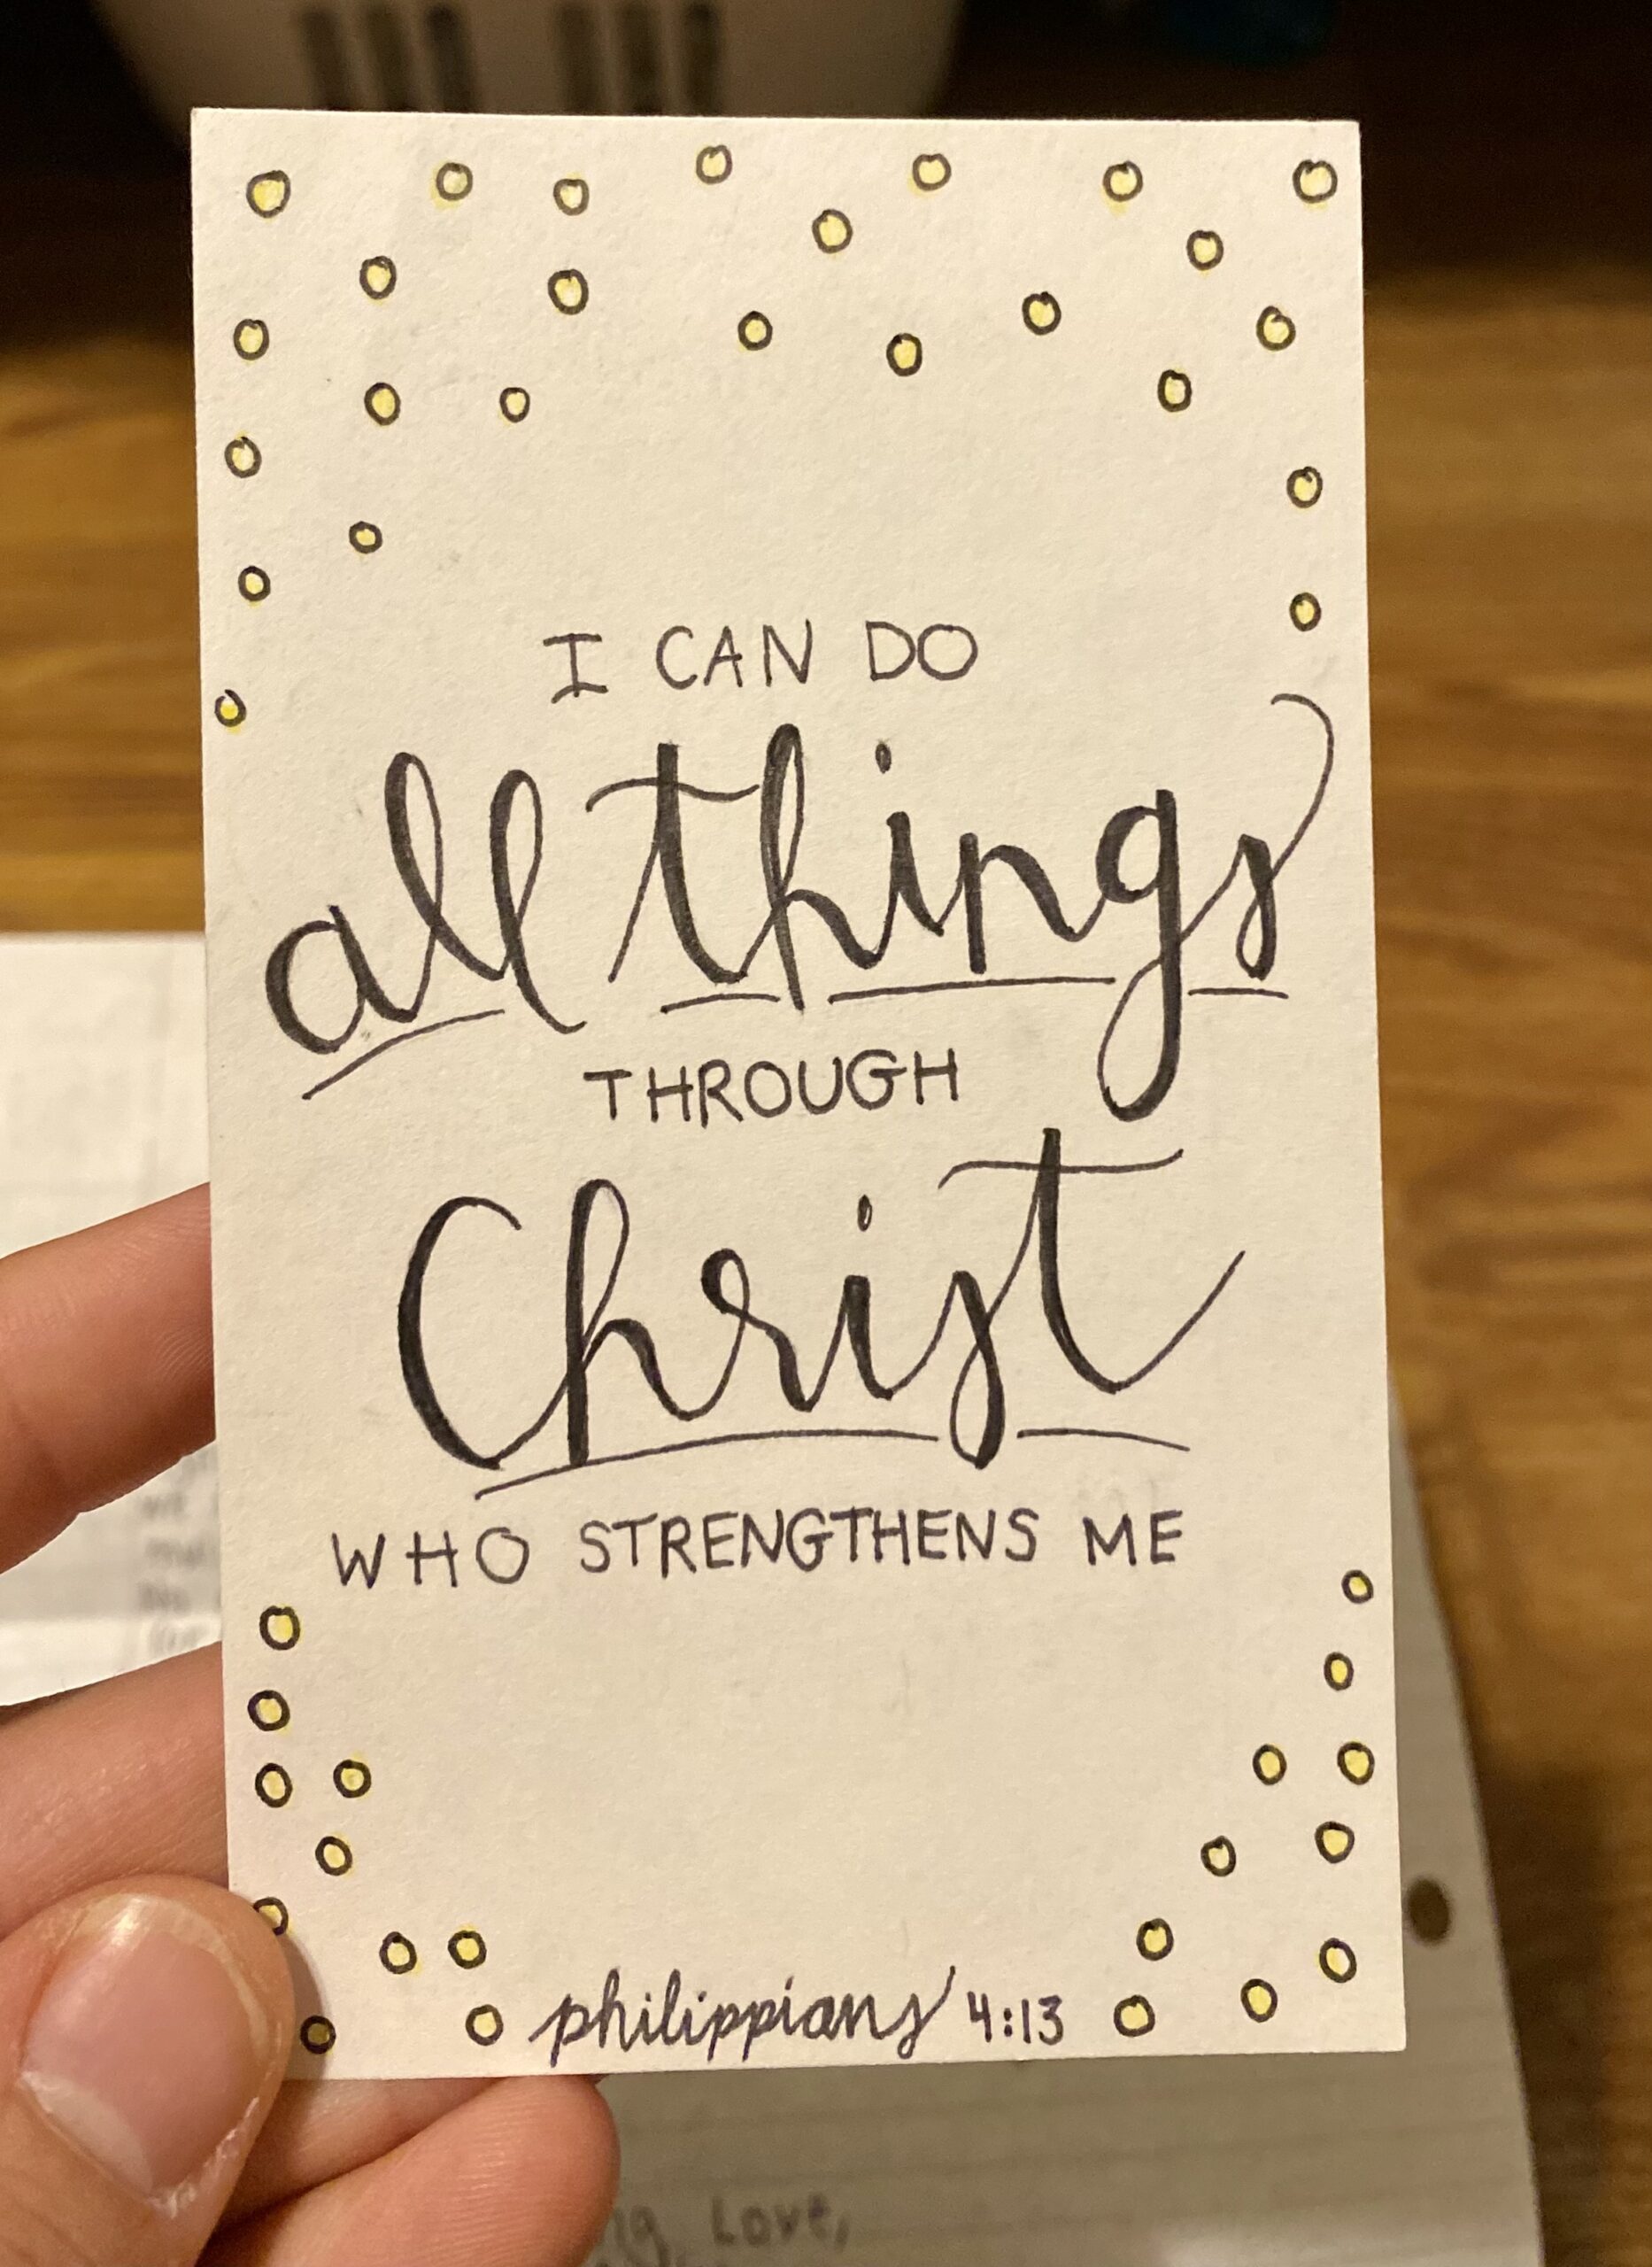 I CAN DO
all things
THROUGH
Christ
WHO STRENGTHENS ME
philippians 4:13
Love,